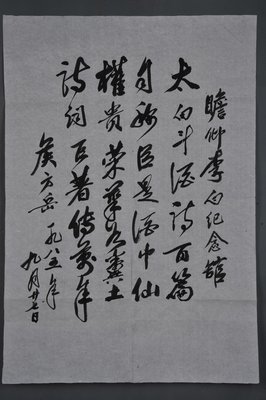 瞻仰李白纪念馆
太白斗酒诗百篇
自称臣是酒中仙
权贵荣华如粪土
诗词巨著传万年
侯方岳 一九八五年
九月廿七日